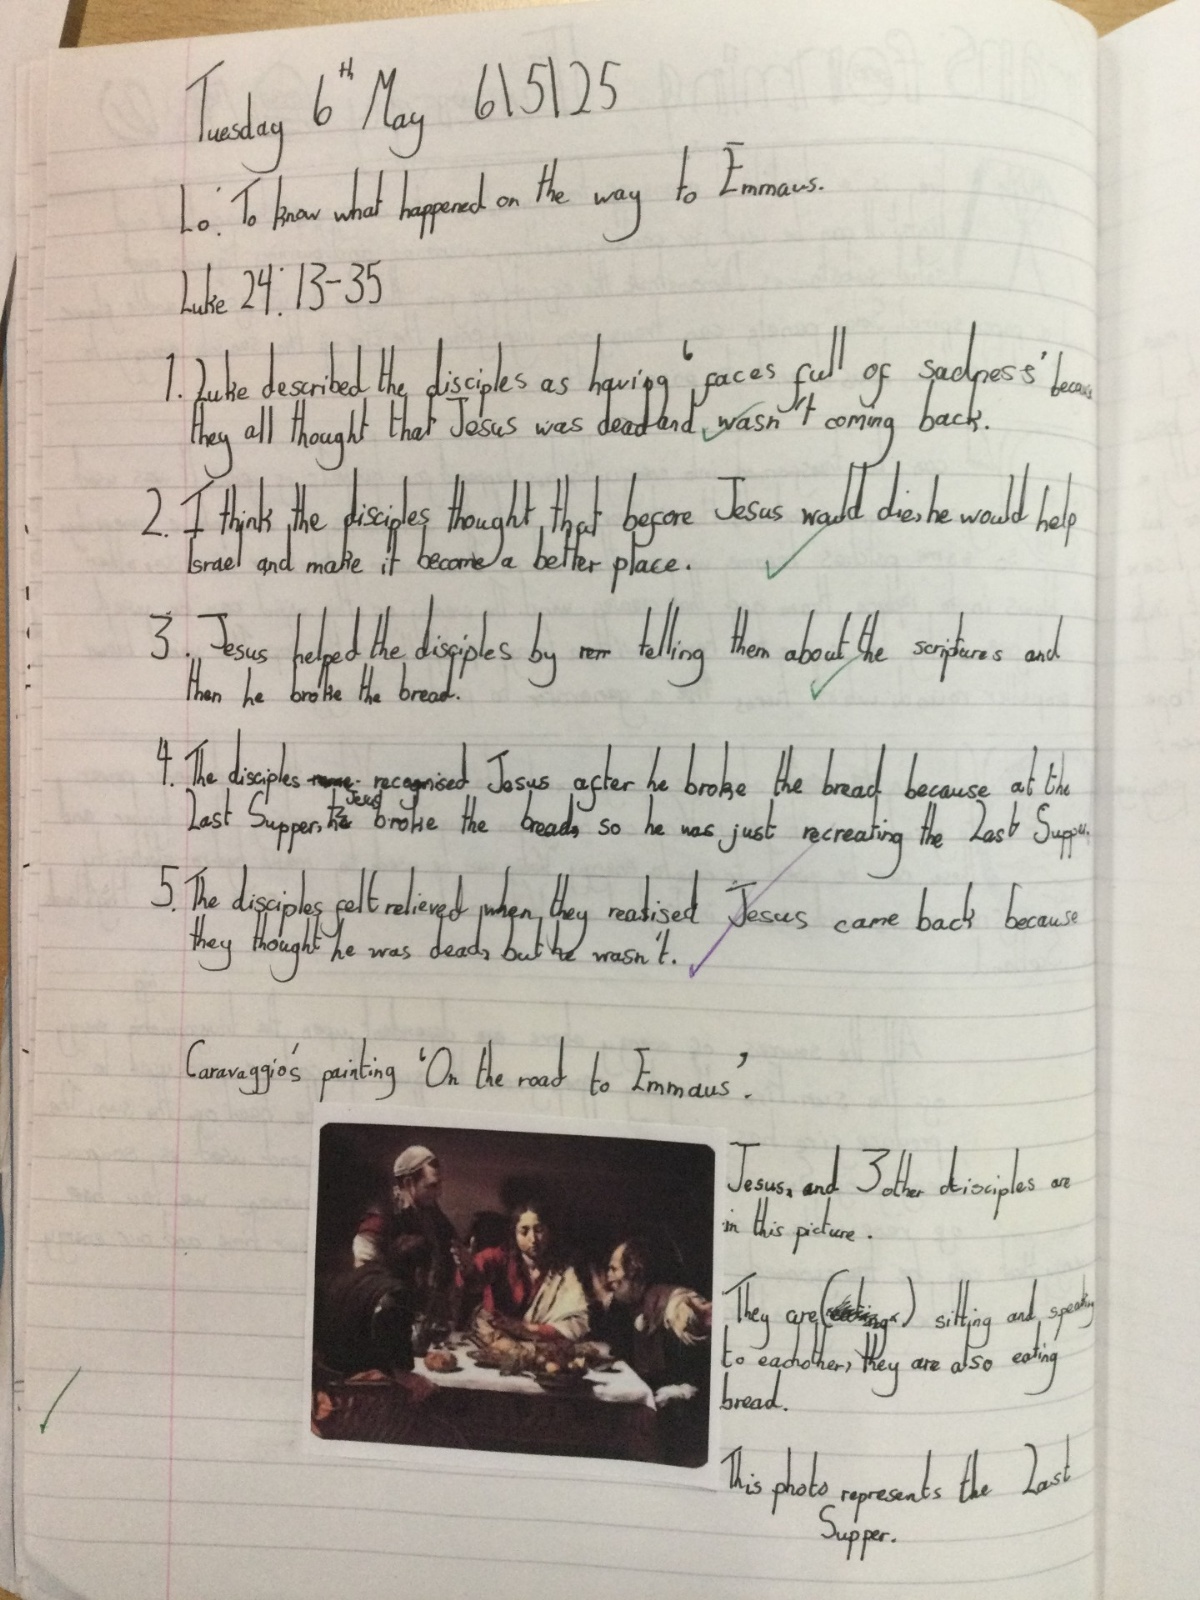 Tuesday 6th May 6\5\25
Lo: To know what happened on the way to Emmaus.
Luke 24:13-35
1. Luke described the disciples as having 'faces full of sadness' because
they all thought that Jesus was dead and wasn't coming back.
2. I think the disciples thought that before Jesus would die, he would help
Israel and make it become a better place.
3. Jesus helped the disciples by telling them about the scriptures and
then he broke the bread.
4. The disciples recognised Jesus after he broke the bread because at the
Last Supper, Jesus broke the bread, so he was just recreating the Last Supper.
5. The disciples felt relieved when they realised Jesus came back because
they thought he was dead, but he wasn't.
Caravaggio's painting 'On the road to Emmaus'.
Jesus, and 3 other disciples are
in this picture.
They are ( ) sitting and speaking
to eachother, they are also eating
bread.
This photo represents the Last
Supper.